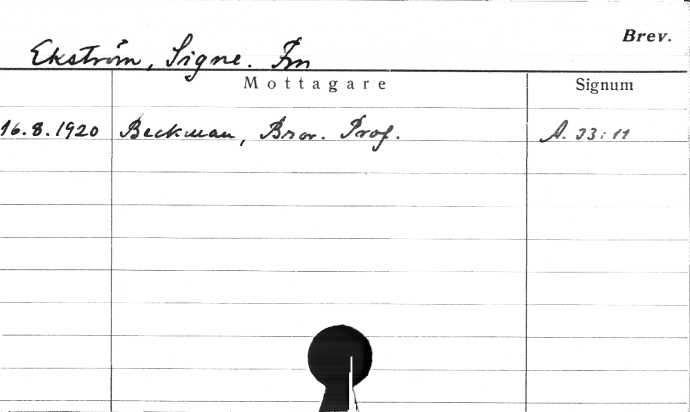 Brev.
Ekström, Signe. Frn
Mottagare Signum
16.8.1920 Beckman, Bror. Prof. A. 33:11